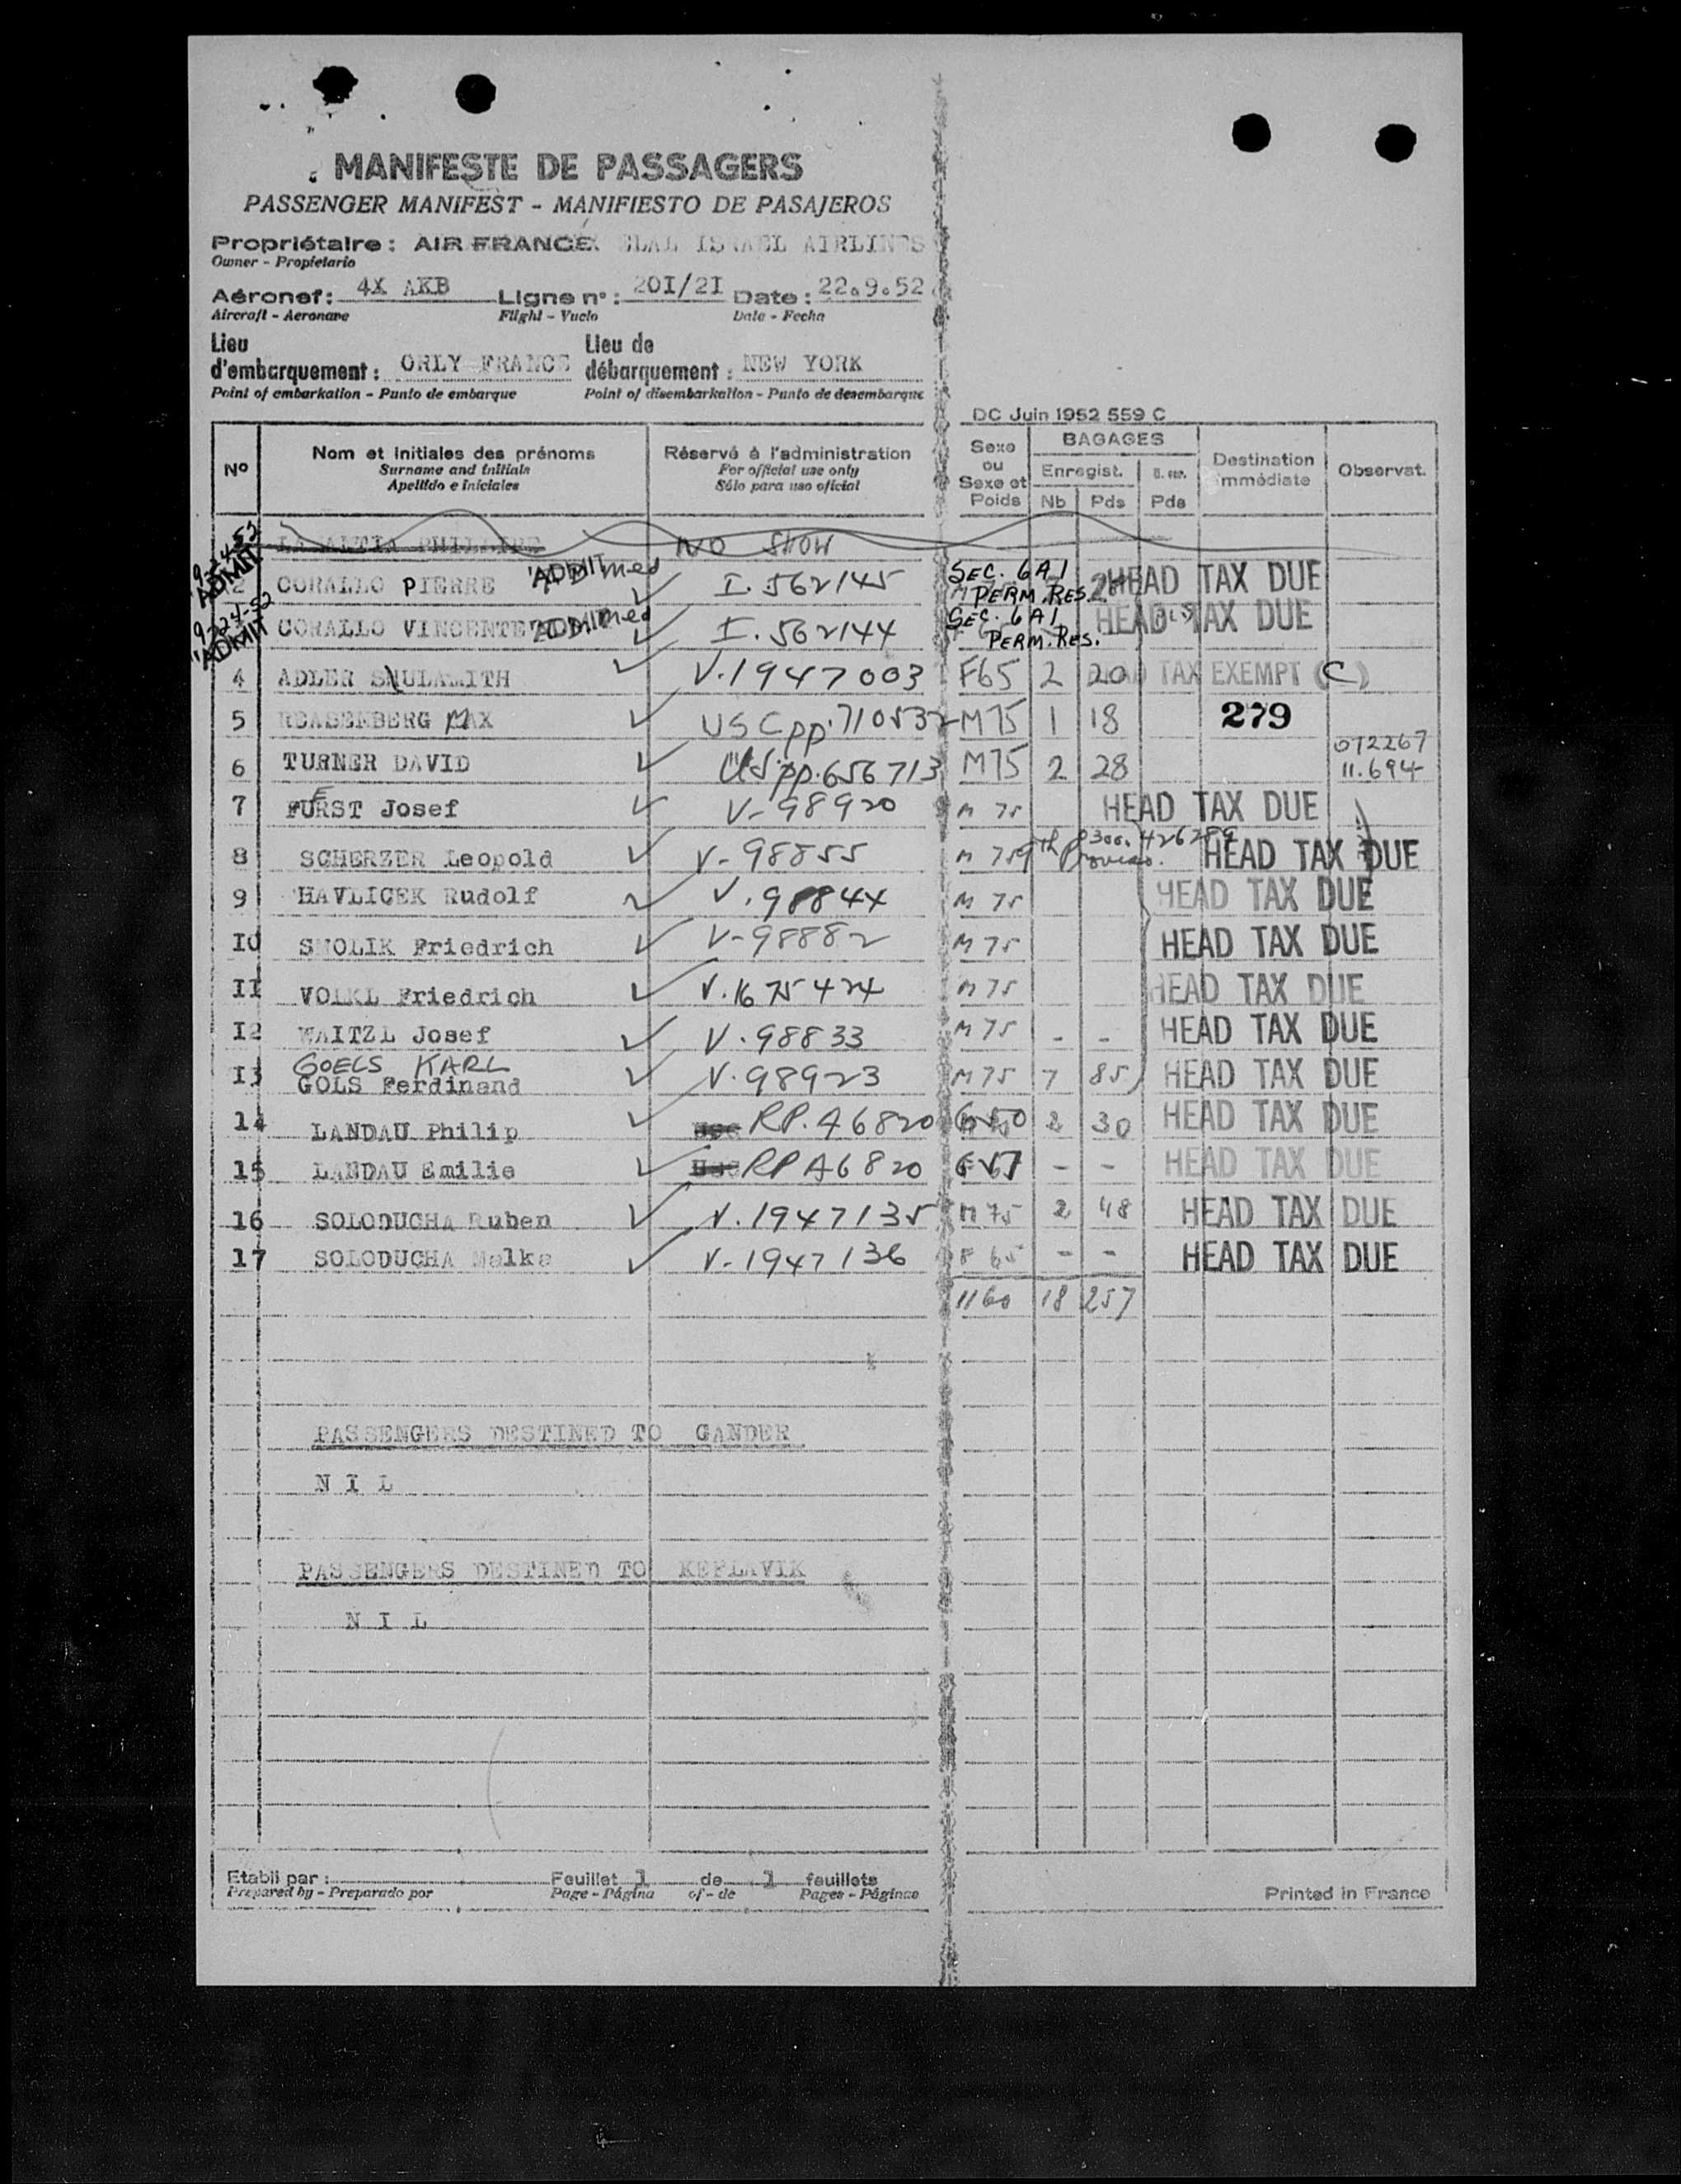 MANIFESTE DE PASSAGERS
PASSENGER MANIFEST - MANIFIESTO DE PASAJEROS
Propriétaire : AIR FRANCE ELAL ISRAEL AIRLINES
Owner - Propietario
Aéronef : 4X AKB Ligne n° : 20I/2I Date : 22.9.52
Aircraft - Aeronave Flight - Vuelo Date - Fecha
Lieu d'embarquement : ORLY FRANCE Lieu de débarquement : NEW YORK
Point of embarkation - Punto de embarque Point of disembarkation - Punto de desembarque
DC Juin 1952 559 C
N° Nom et initiales des prénoms Réservé à l'administration Sexe ou Sexe et Poids BAGAGES Destination immédiate Observat.
Surname and initials For official use only Enregist.
Apellido e iniciales Sólo para uso oficial Nb Pds Pds
PHILIPPE NO SHOW
9-24-52 ADMIT
2 CORALLO PIERRE ADMITTED I. 562145 SEC. 6A1 PERM. RES. HEAD TAX DUE
9-24-52 ADMIT
CORALLO VINCENTE I. 562144 SEC. 6A1 PERM. RES. HEAD TAX DUE
4 ADLER SHULAMITH V. 1947003 F65 2 20 HEAD TAX EXEMPT (C)
5 MAX USC pp. 710532 M75 1 18 279
6 TURNER DAVID US pp. 656713 M75 2 28 072267 11.694
7 FUERST Josef V-98920 M 75 HEAD TAX DUE
8 SCHERZER Leopold V-98855 M 75 9th Proviso. HEAD TAX DUE
9 HAVLICEK Rudolf V. 98844 M 75 HEAD TAX DUE
I0 SMOLIK Friedrich V-98882 M 75 HEAD TAX DUE
II VOLKL Friedrich V. 1675424 M 75 HEAD TAX DUE
I2 WAITZL Josef V. 98833 M 75 - - HEAD TAX DUE
GOELS KARL
I3 GOLS Ferdinand V. 98923 M 75 7 85 HEAD TAX DUE
14 LANDAU Philip RP. A6820 2 30 HEAD TAX DUE
15 LANDAU Emilie RP A6820 - - HEAD TAX DUE
16 SOLODUCHA Ruben V. 1947135 M 75 2 48 HEAD TAX DUE
17 SOLODUCHA Malka V-1947136 F 65 - - HEAD TAX DUE
1160 18 257
PASSENGERS DESTINED TO GANDER
N I L
PASSENGERS DESTINED TO KEFLAVIK
N I L
Etabli par : Feuillet 1 de 1 feuillets
Prepared by - Preparado por Page - Página of - de Pages - Páginas
Printed in France